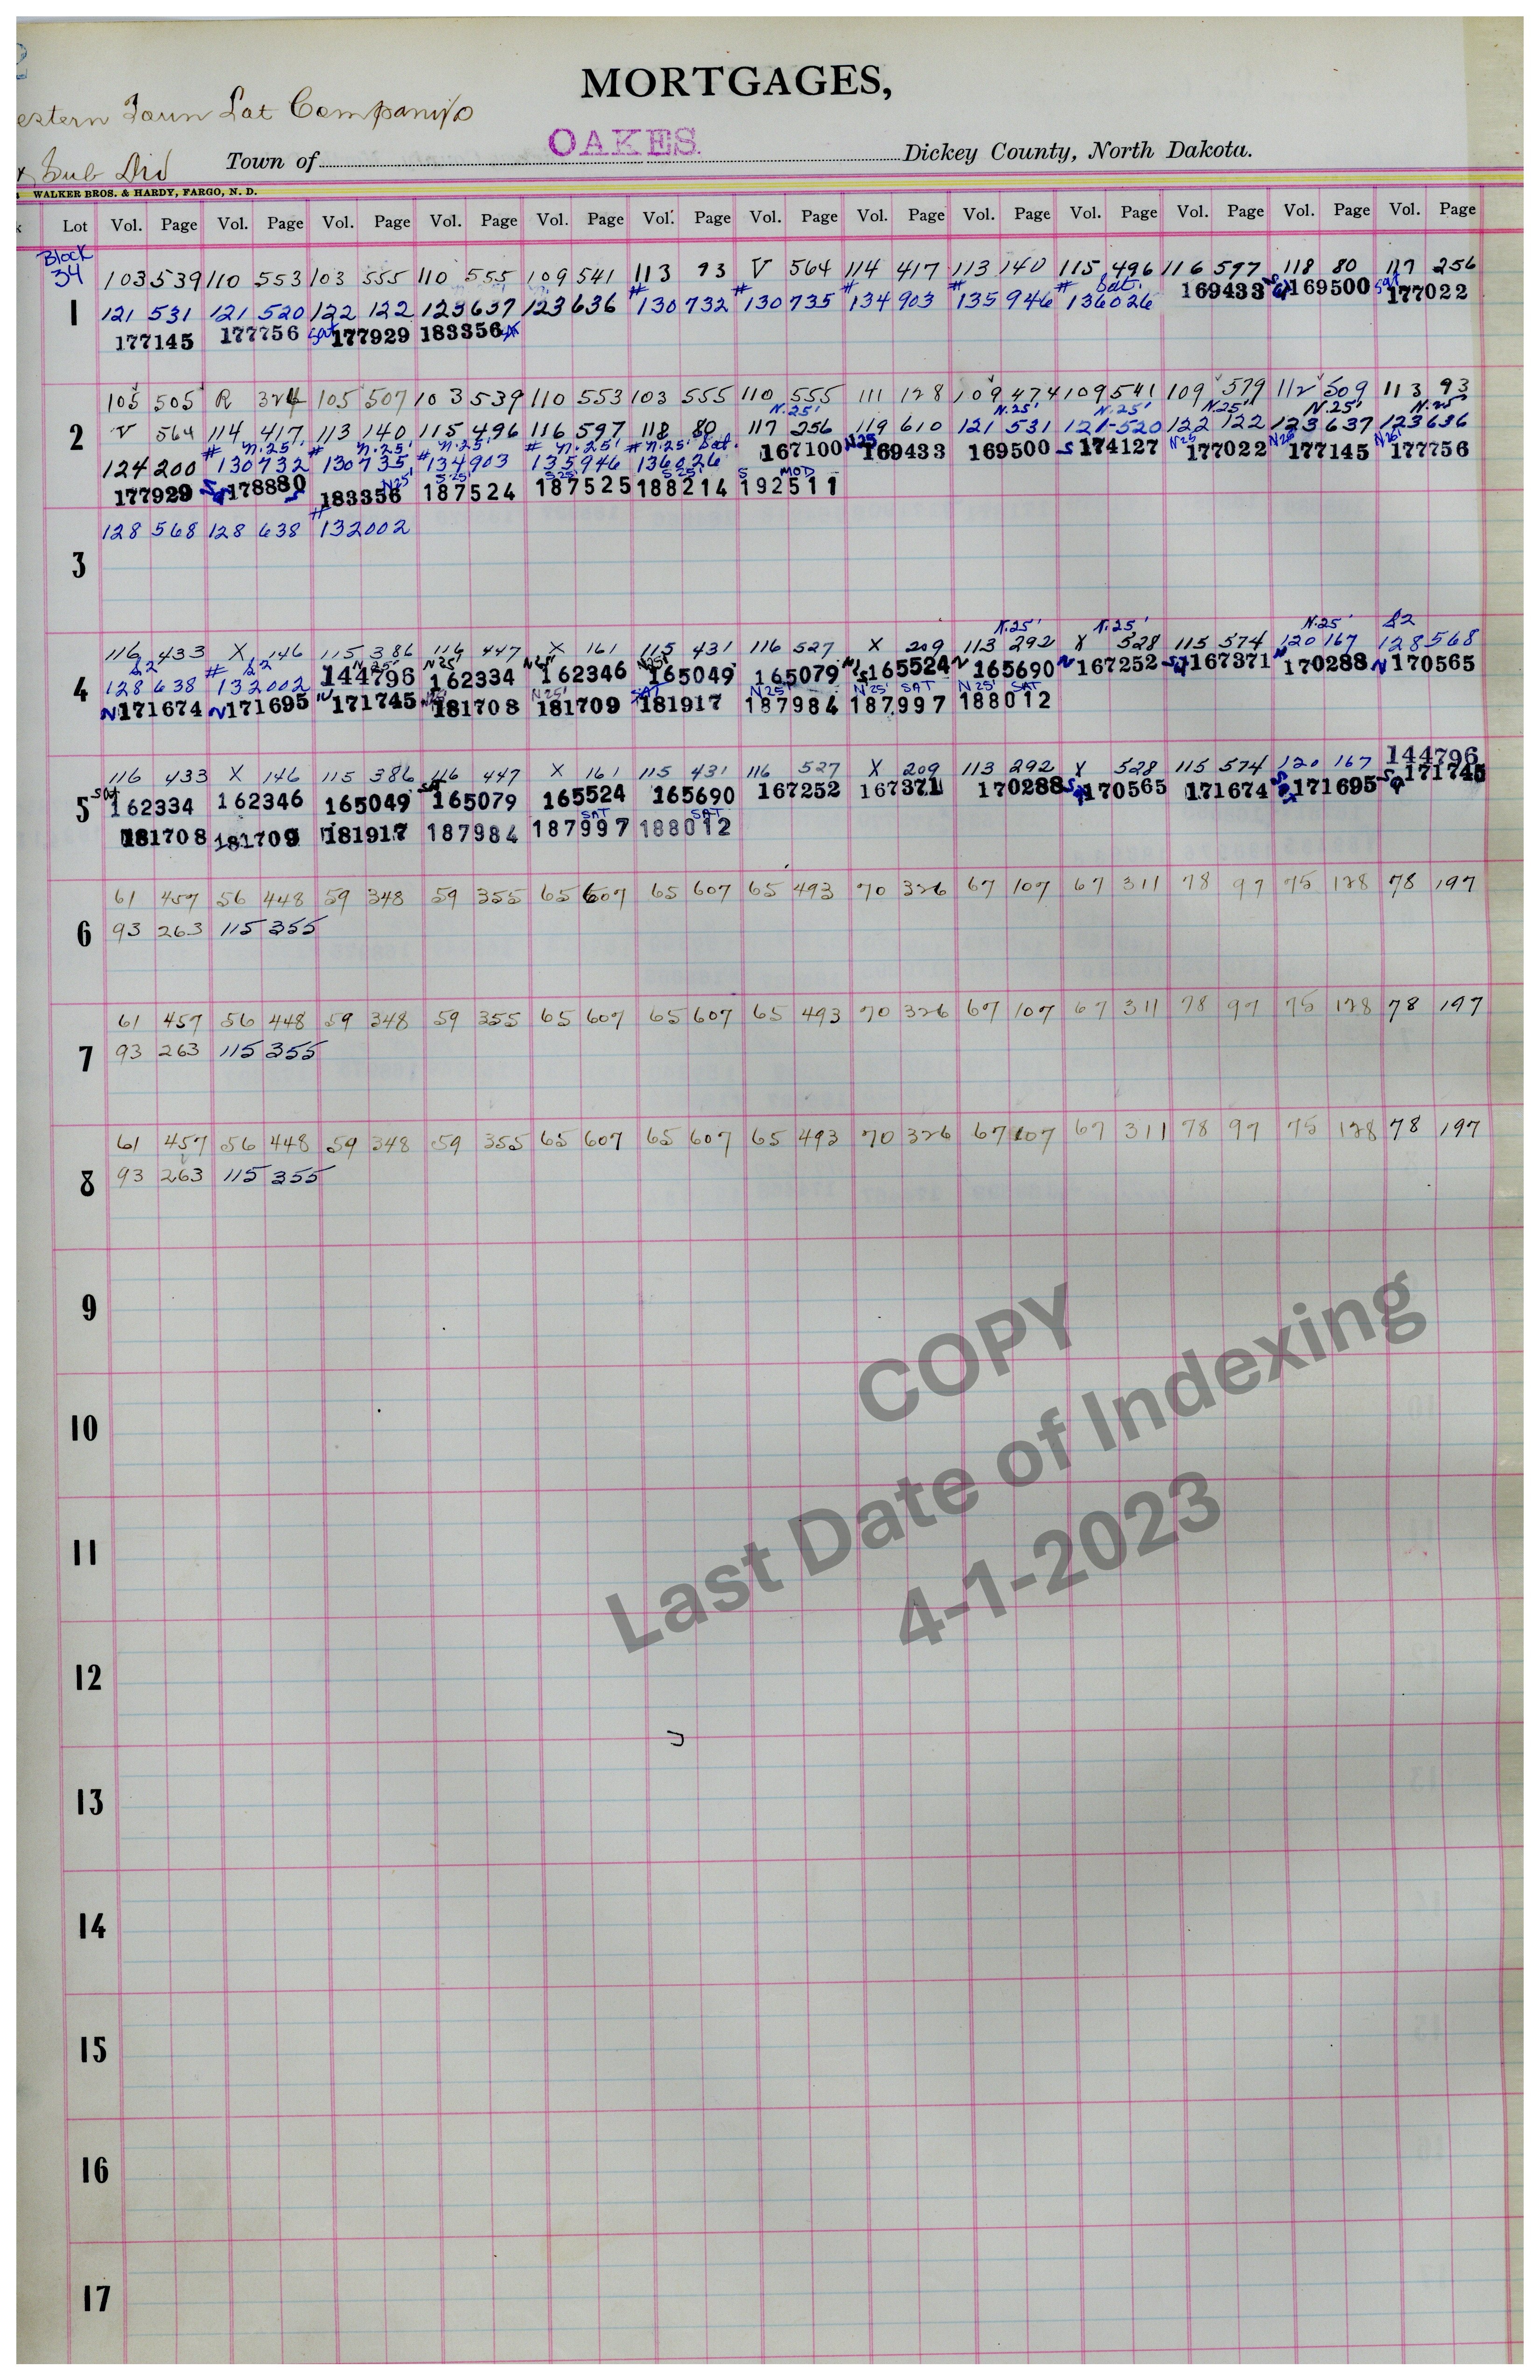 MORTGAGES,
estern Town Lot Company's
OAKES.
Sub Div Town of Dickey County, North Dakota.
WALKER BROS. & HARDY, FARGO, N. D.
Lot Vol. Page Vol. Page Vol. Page Vol. Page Vol. Page Vol. Page Vol. Page Vol. Page Vol. Page Vol. Page Vol. Page Vol. Page Vol. Page
Block
34 103 539 110 553 103 555 110 555 109 541 113 93 V 564 114 417 113 140 115 496 116 597 118 80 117 256
# # # # # Sat.
1 121 531 121 520 122 122 123 637 123 636 130 732 130 735 134 903 135 946 136026 169433 169500 Sat 177022
177145 177756 Sat 177929 183356
105 505 R 324 105 507 103 539 110 553 103 555 110 555 111 128 109 474 109 541 109 579 112 509 113 93
N.25' N.25' N.25' N.25' N.25' N.25'
2 V 564 114 417 113 140 115 496 116 597 118 80 117 256 119 610 121 531 121-520 122 122 123 637 123 636
# N.25' # N.25' # N.25' # N.25' # N.25' Sat.
124 200 130732 130735 134903 135946 136026 167100 N25 169433 169500 S 174127 N25' 177022 N25' 177145 N25' 177756
N25' S25' S25' S25' S MOD
177929 178880 183356 187524 187525 188214 192511
#
128 568 128 638 132002
3
N.25' N.25' N.25' S2
116 433 X 146 115 386 116 447 X 161 115 431 116 527 X 209 113 292 X 528 115 574 120 167 128 568
S2 # S2 N25' N25' N25' N25'
4 128 638 132002 144796 162334 162346 165049 165079 165524 N 165690 N 167252 167371 N 170288 N 170565
N25' SAT N25' N25' SAT N25' SAT
N 171674 N 171695 N 171745 181708 181709 181917 187984 187997 188012
116 433 X 146 115 386 116 447 X 161 115 431 116 527 X 209 113 292 X 528 115 574 120 167 144796
5 Sat 162334 162346 165049 Sat 165079 165524 165690 167252 167371 170288 170565 171674 171695 171745
SAT SAT
181708 181709 181917 187984 187997 188012
61 457 56 448 59 348 59 355 65 607 65 607 65 493 70 326 67 107 67 311 78 97 75 128 78 197
6 93 263 115 355
61 457 56 448 59 348 59 355 65 607 65 607 65 493 70 326 67 107 67 311 78 97 75 128 78 197
7 93 263 115 355
61 457 56 448 59 348 59 355 65 607 65 607 65 493 70 326 67 107 67 311 78 97 75 128 78 197
8 93 263 115 355
9
10
11
12
13
14
15
16
17
COPY
Last Date of Indexing
4-1-2023